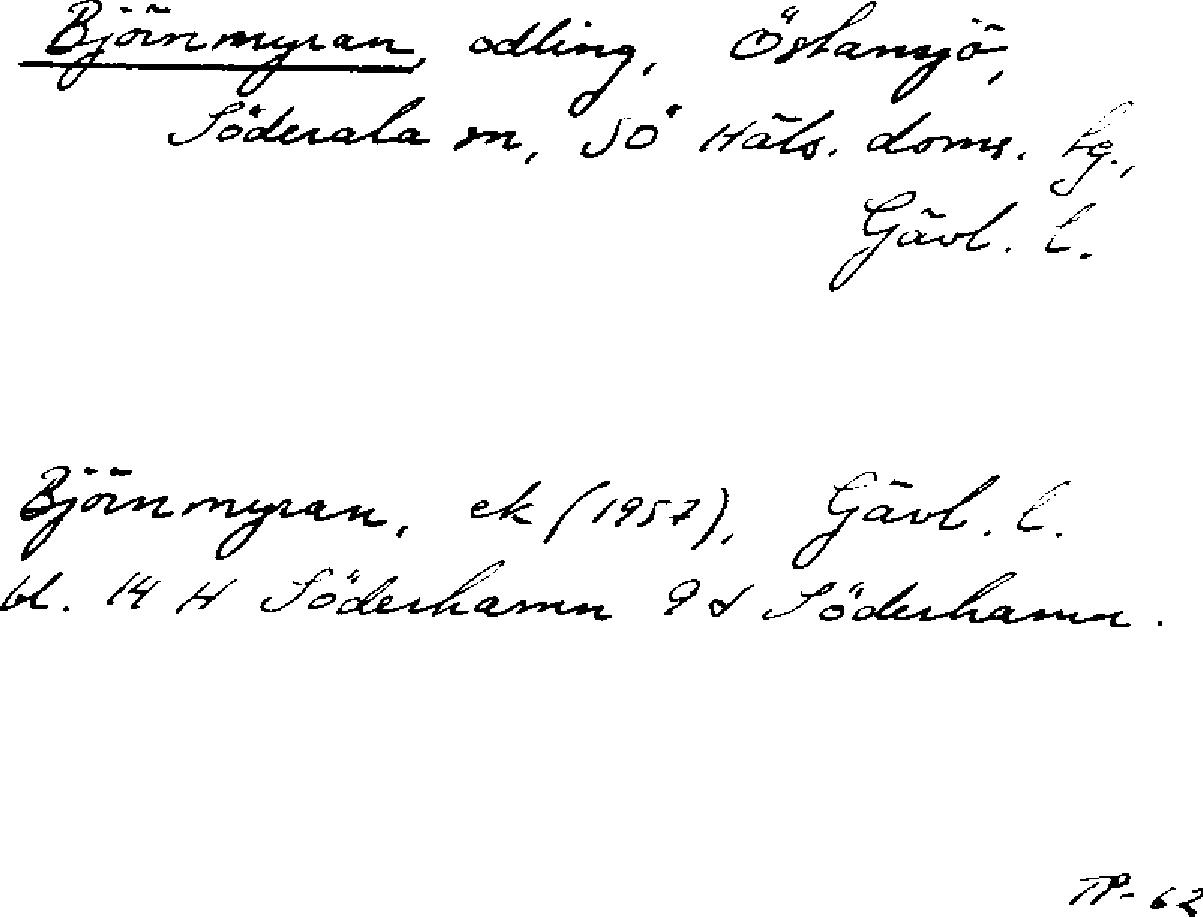 Björnmyran, odling, Östansjö,
Söderala sn, SÖ Häls. doms. tg.,
Gävl. l.
Björnmyran, ek (1957), Gävl. l.
bl. 14 H Söderhamn 9 d Söderhamn.
TP-62